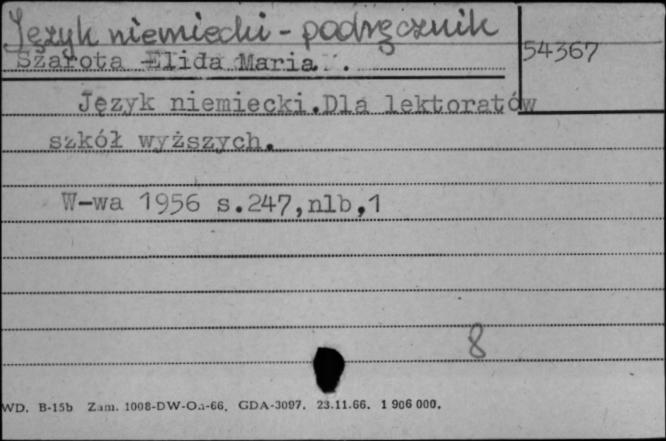 Język niemiecki - podręcznik
Szarota Elida Maria .
54367
Język niemiecki.Dla lektoratów
szkół wyższych.
W-wa 1956 s.247,nlb,1
8
WD. B-15b Zam. 1008-DW-Oa-66. GDA-3097. 23.11.66. 1 906 000.